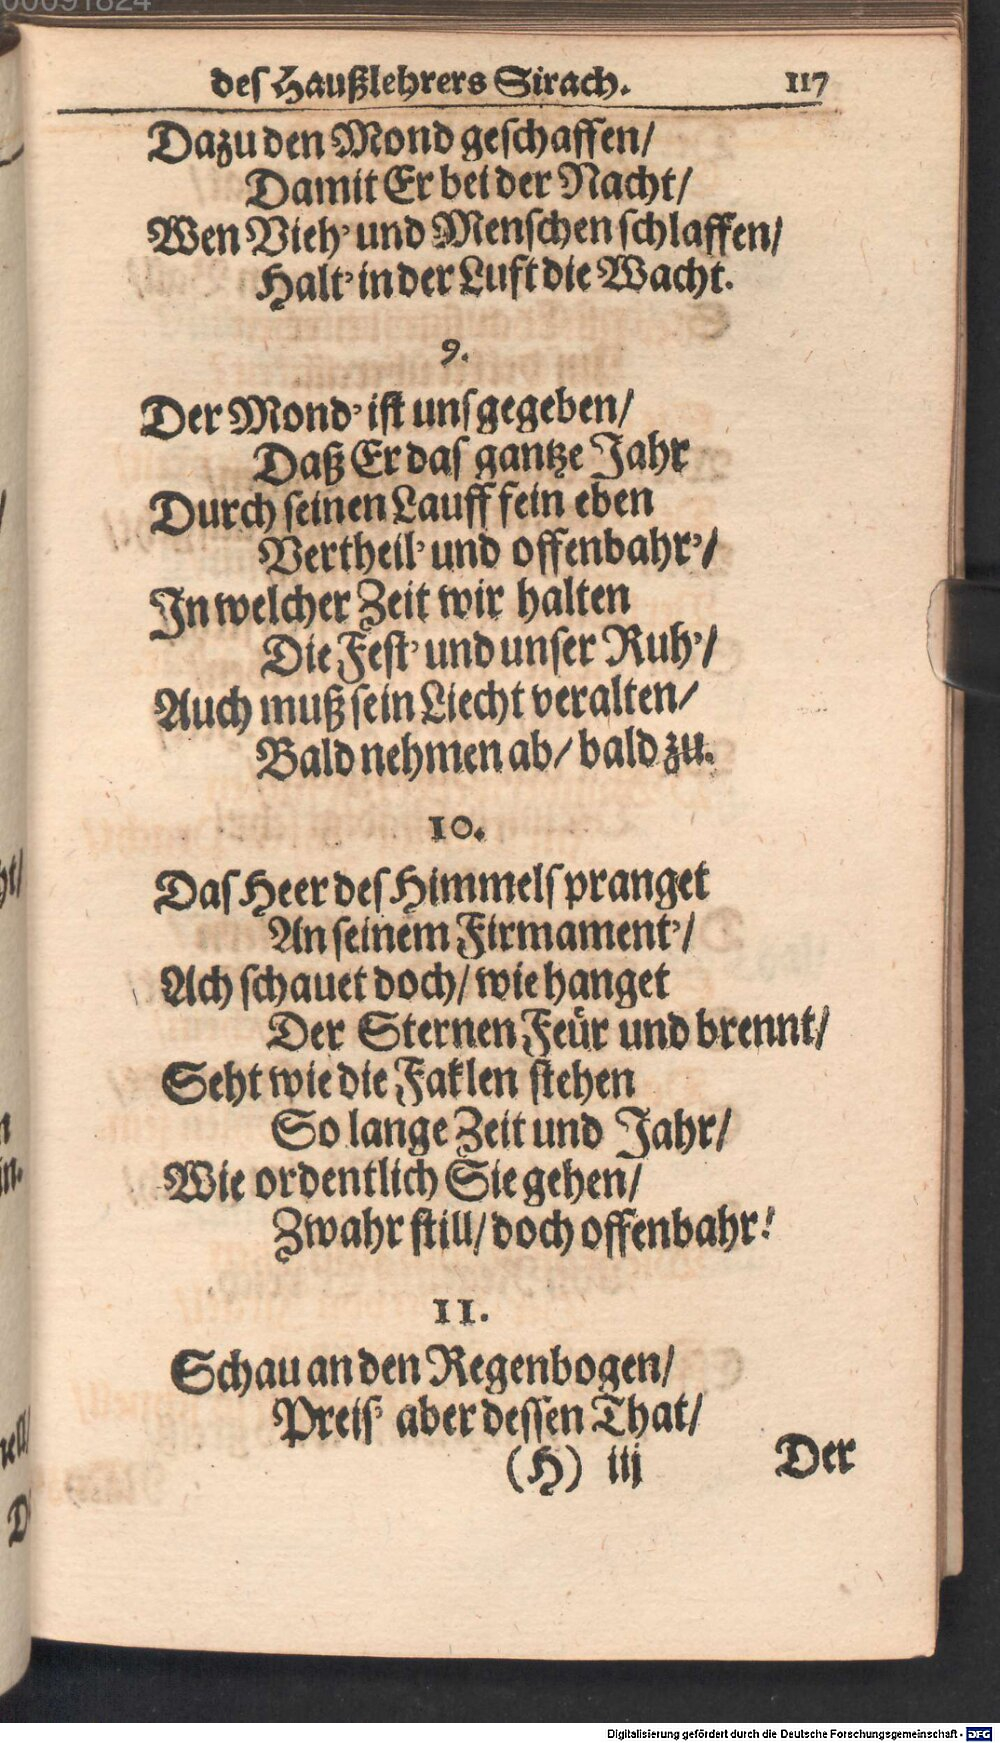 des Haußlehrers Sirach. 117
Dazu den Mond geschaffen/
Damit Er bei der Nacht/
Wen Vieh' und Menschen schlaffen/
Halt' in der Luft die Wacht.
9.
Der Mond' ist uns gegeben/
Daß Er das gantze Jahr
Durch seinen Lauff fein eben
Vertheil' und offenbahr'/
In welcher Zeit wir halten
Die Fest' und unser Ruh'/
Auch muß sein Liecht veralten/
Bald nehmen ab/ bald zu.
10.
Das Heer des Himmels pranget
An seinem Firmament'/
Ach schauet doch/ wie hanget
Der Sternen Feür und brennt/
Seht wie die Faklen stehen
So lange Zeit und Jahr/
Wie ordentlich Sie gehen/
Zwahr still/ doch offenbahr!
11.
Schau an den Regenbogen/
Preis' aber dessen That/
(H) iij Der
Digitalisierung gefördert durch die Deutsche Forschungsgemeinschaft - DFG